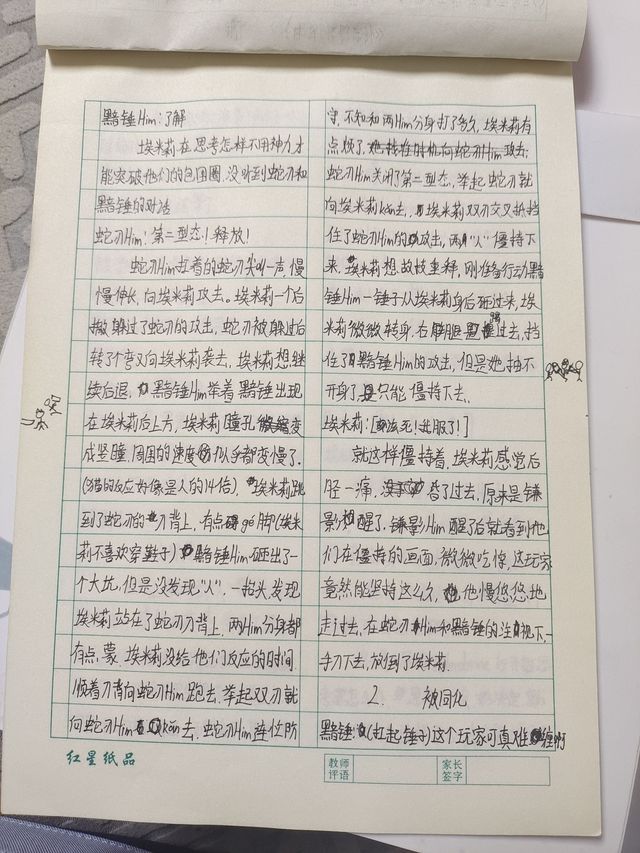 黯锤Him：了解
埃米莉在思考怎样不用神力才
能突破他们的包围圈，没听到蛇刃和
黯锤的对话
蛇刃Him：第二型态！释放！
蛇刃Him拉着的蛇刃尖叫一声，慢
慢伸长，向埃米莉攻去。埃米莉一个后
撤躲过了蛇刃的攻击，蛇刃被躲过后
转了个弯又向埃米莉袭去，埃米莉想继
续后退，黯锤Him举着黯锤出现
在埃米莉后上方，埃米莉瞳孔变
成竖瞳，周围的速度似乎都变慢了。
(猫的反应好像是人的14倍)，埃米莉跳
到了蛇刃的刀背上，有点gé脚(埃米
莉不喜欢穿鞋子)黯锤Him砸出了一
个大坑，但是没发现“人”，一抬头，发现
埃米莉站在了蛇刃刀背上，两Him分身都
有点蒙，埃米莉没给他们反应的时间
顺着刀背向蛇刃Him跑去，举起双刃就
向蛇刃Him kǎn去，蛇刃Him连忙防
守，不知和两Him分身打了多久，埃米莉有
点烦了，
蛇刃Him关闭了第二型态，举起蛇刃就
向埃米莉kǎn去，埃米莉双刃交叉抵挡
住了蛇刃Him的攻击，两“人”僵持下
来，埃米莉想故技重释，刚准备行动黯
锤Him一锤子从埃米莉身后砸过来，埃
米莉微微转身，右过去，挡
住了黯锤Him的攻击，但是她抽不
开身了，只能僵持下去。
埃米莉：[该死！我服了！]
就这样僵持着，埃米莉感觉后
脖一痛，昏了过去，原来是镰
影醒了，镰影Him醒了后就看到他
们在僵持的画面，微微吃惊，这玩家
竟然能坚持这么久，他慢悠悠地
走过去，在蛇刃Him和黯锤的注视下，一
手刀下去，放倒了埃米莉.
2. 被同化
黯锤：(扛起锤子)这个玩家可真难缠啊
红星纸品
教师评语
家长签字